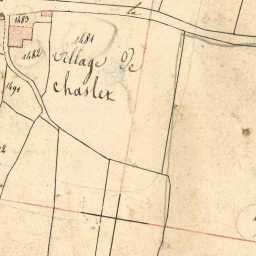 le
1483
1482
1481
village De
chaslex
1491